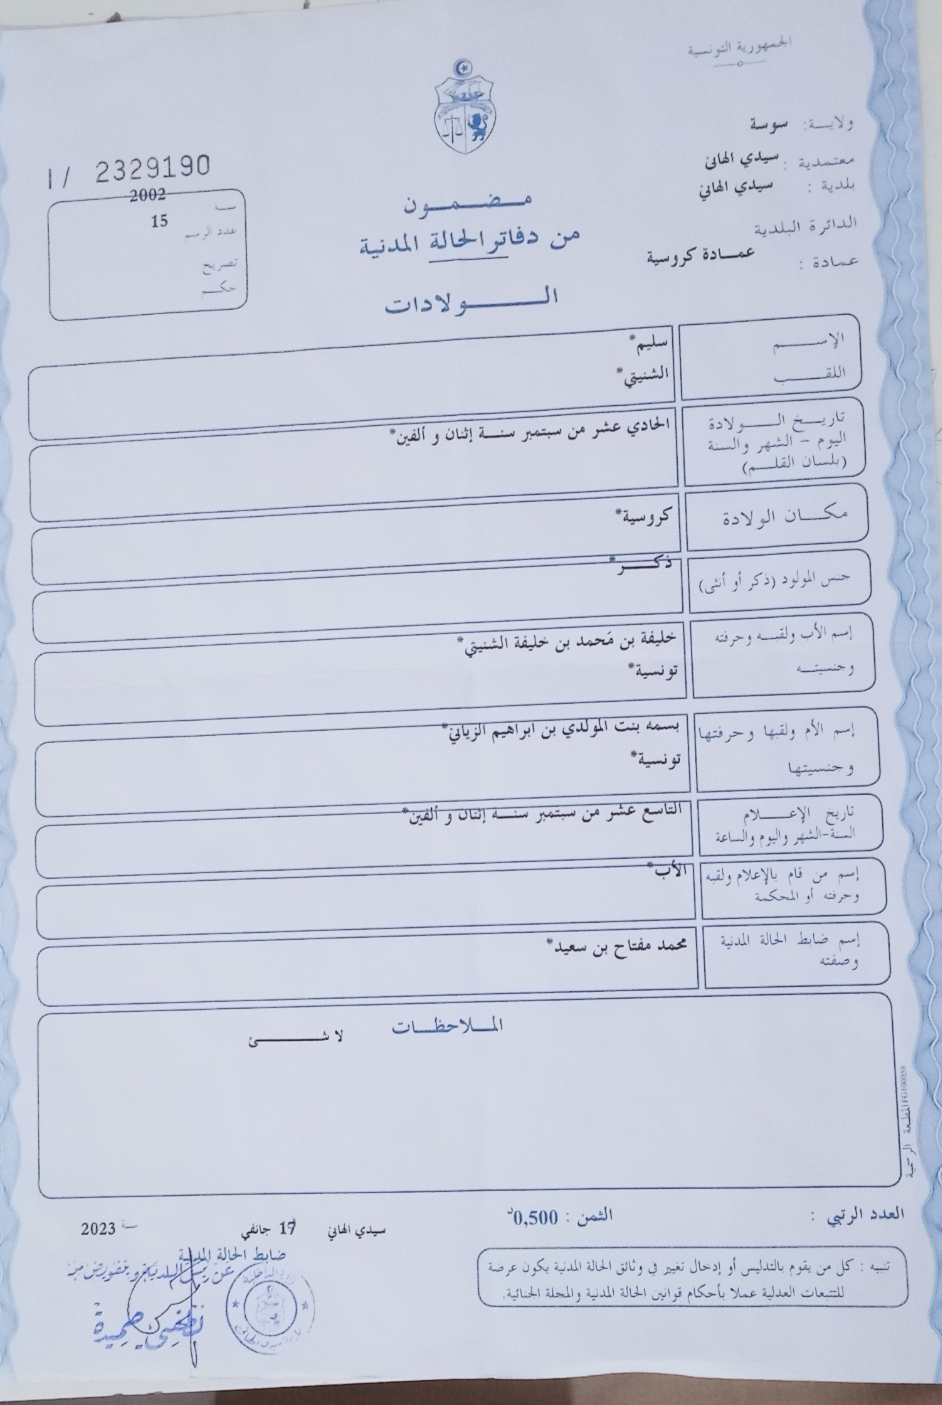 الجمهورية التونسية
ولاية: سوسة
معتمدية : سيدي الهاني
بلدية : سيدي الهاني
الدائرة البلدية
عمادة : عمادة كروسية
I / 2329190
سنة 2002
عدد الرسم 15
تصريح
حكم
مضمون
من دفاتر الحالة المدنية
الولادات
الإسم سليم*
اللقب الشنيتي*
تاريخ الولادة
اليوم - الشهر والسنة
(بلسان القلم)
الحادي عشر من سبتمبر سنة إثنان و ألفين*
مكان الولادة كروسية*
جنس المولود (ذكر أو أنثى) ذكر*
إسم الأب ولقبه وحرفته
وجنسيته
خليفة بن مَحمد بن خليفة الشنيتي*
تونسية*
إسم الأم ولقبها وحرفتها
وجنسيتها
بسمه بنت المولدي بن ابراهيم الزياني*
تونسية*
تاريخ الإعلام
السنة-الشهر واليوم والساعة
التاسع عشر من سبتمبر سنة إثنان و ألفين*
إسم من قام بالإعلام ولقبه
وحرفته أو المحكمة
الأب*
إسم ضابط الحالة المدنية
وصفته
محمد مفتاح بن سعيد*
الملاحظات
لا شئ
المطبعة الرسمية
العدد الرتبي :
الثمن : 0,500د
سيدي الهاني 17 جانفي سنة 2023
ضابط الحالة المدنية
عن رئيس البلدية وبتفويض منه
حميدة
تنبيه : كل من يقوم بالتدليس أو إدخال تغيير في وثائق الحالة المدنية يكون عرضة
للتتبعات العدلية عملا بأحكام قوانين الحالة المدنية والمجلة الجنائية.